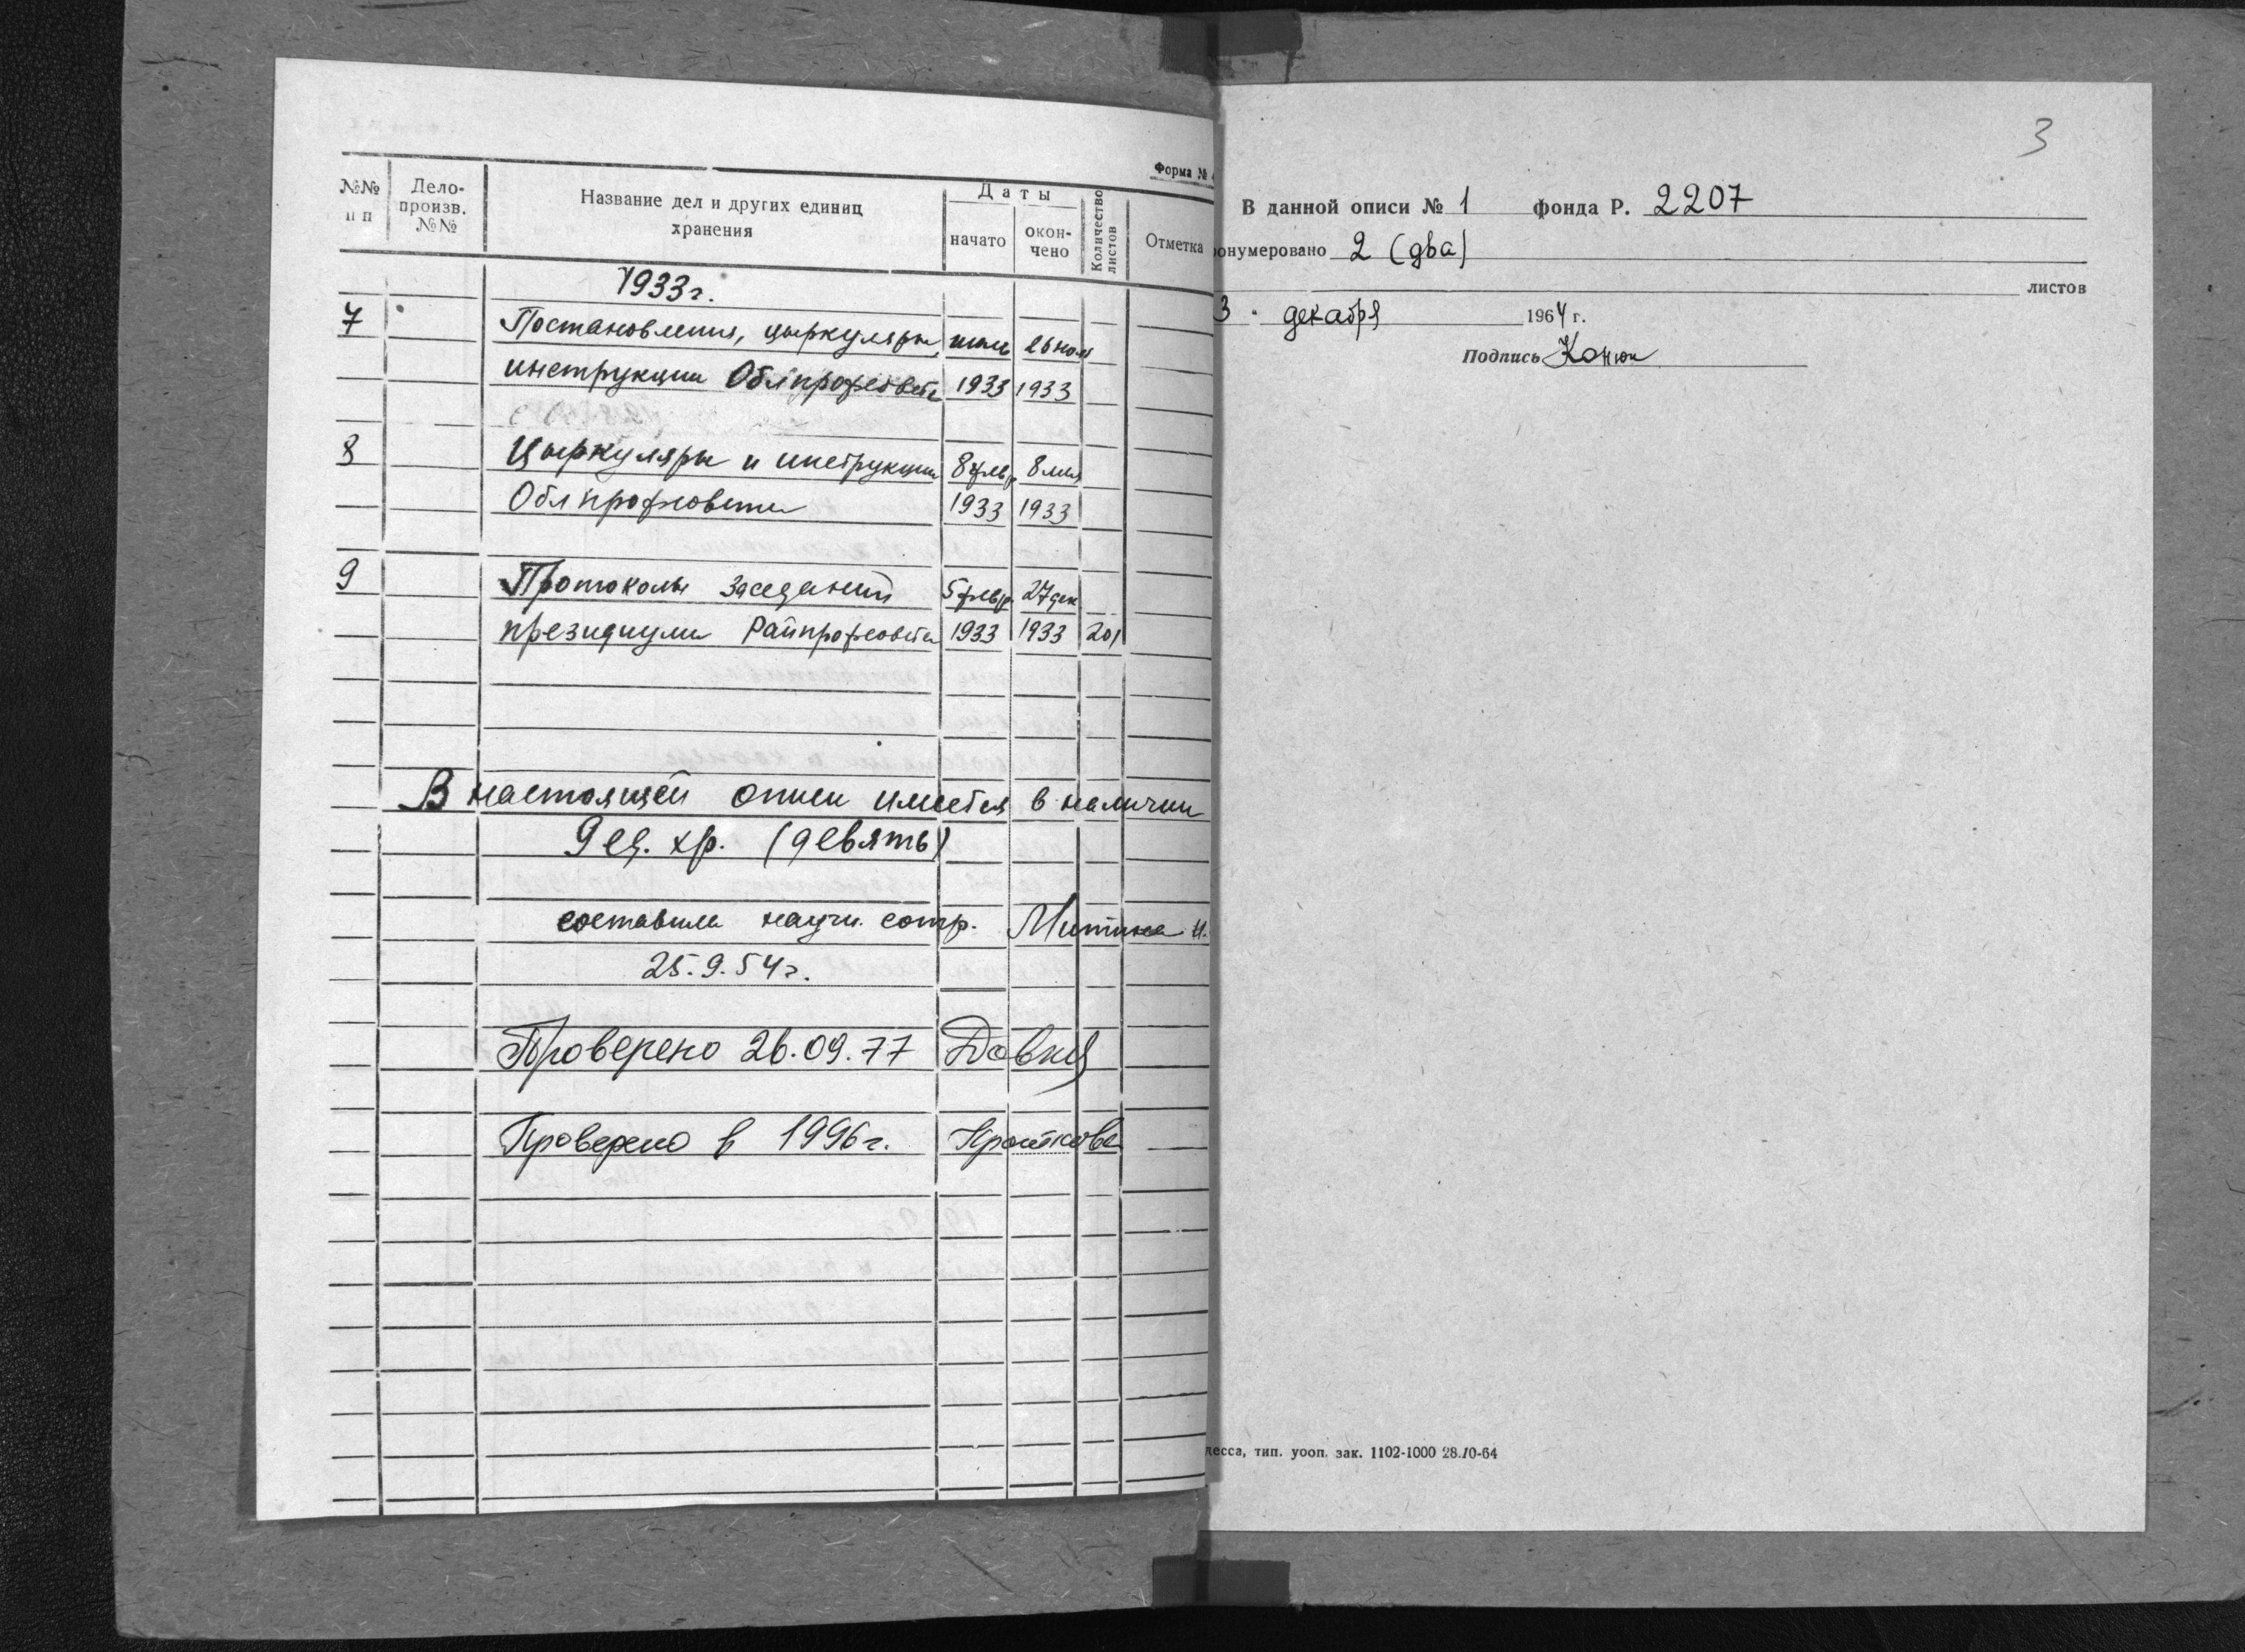 Форма №
№№ п п
Дело-произв. №№
Название дел и других единиц хранения
Даты
начато
окончено
Количество листов
Отметка
1933г.
7 Постановления, циркуляры, 26 ноя
инструкции Облпрофсовета 1933 1933
8 Циркуляры и инструкции 8 февр. 8 мая
Облпрофсовета 1933 1933
9 Протоколы заседаний 5 февр. 27 дек
президиума Райпрофсовета 1933 1933 201
В настоящей описи имеется в наличии
9 ед. хр. (девять)
составила научн. сотр. Митина Н.
25.9.54г.
Проверено 26.09.77
Проверено в 1996г. Кроткова
3
В данной описи № 1 фонда Р. 2207
онумеровано 2 (два)
листов
3 " декабря 1964 г.
Подпись
десса, тип. уооп. зак. 1102-1000 28.10-64